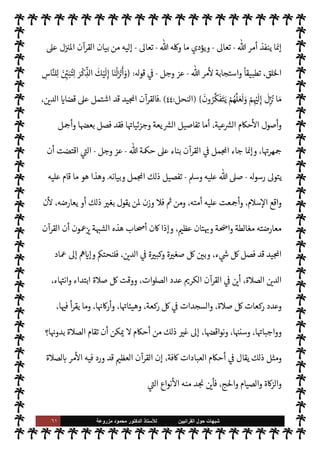 إنما ينفذ أمر الله - تعالى - ويؤدي ما وكله الله - تعالى - إليه من بيان القرآن المنزل على
الخلق، تطبيقاً واستجابة لأمر الله - عز وجل - في قوله: (وَأَنْزَلْنَا إِلَيْكَ الذِّكْرَ لِتُبَيِّنَ لِلنَّاسِ
مَا نُزِّلَ إِلَيْهِمْ وَلَعَلَّهُمْ يَتَفَكَّرُونَ) (النحل:٤٤). فالقرآن المجيد قد اشتمل على قضايا الدين،
وأصول الأحكام الشرعية، أما تفاصيل الشريعة وجزئياتها فقد فصل بعضها وأجمل
جمهرتها، وإنما جاء المجمل في القرآن بناء على حكمة الله - عز وجل - التي اقتضت أن
يتولى رسوله - صلى الله عليه وسلم - تفصيل ذلك المجمل وبيانه. وهذا هو ما قام عليه
واقع الإسلام، وأجمعت عليه أمته، ومن ثم فلا وزن لمن يقول بغير ذلك أو يعارضه، لأن
معارضته مغالطة واضحة وبهتان عظيم، وإذا كان أصحاب هذه الشبهة يزعمون أن القرآن
المجيد قد فصل كل شيء، وبين كل صغيرة وكبيرة في الدين، فلنحتكم وإياهم إلى عماد
الدين الصلاة، أين في القرآن الكريم عدد الصلوات، ووقت كل صلاة ابتداء وانتهاء،
وعدد ركعات كل صلاة، والسجدات في كل ركعة، وهيئاتها، وأركانها، وما يقرأ فيها،
وواجباتها، وسننها، ونواقضها، إلى غير ذلك من أحكام لا يمكن أن تقام الصلاة بدونها؟
ومثل ذلك يقال في أحكام العبادات كافة، إن القرآن العظيم قد ورد فيه الأمر بالصلاة
والزكاة والصيام والحج، فأين نجد منه الأنواع التي
شبهات حول القرانيين للأستاذ الدكتور محمود مزروعة ٦١